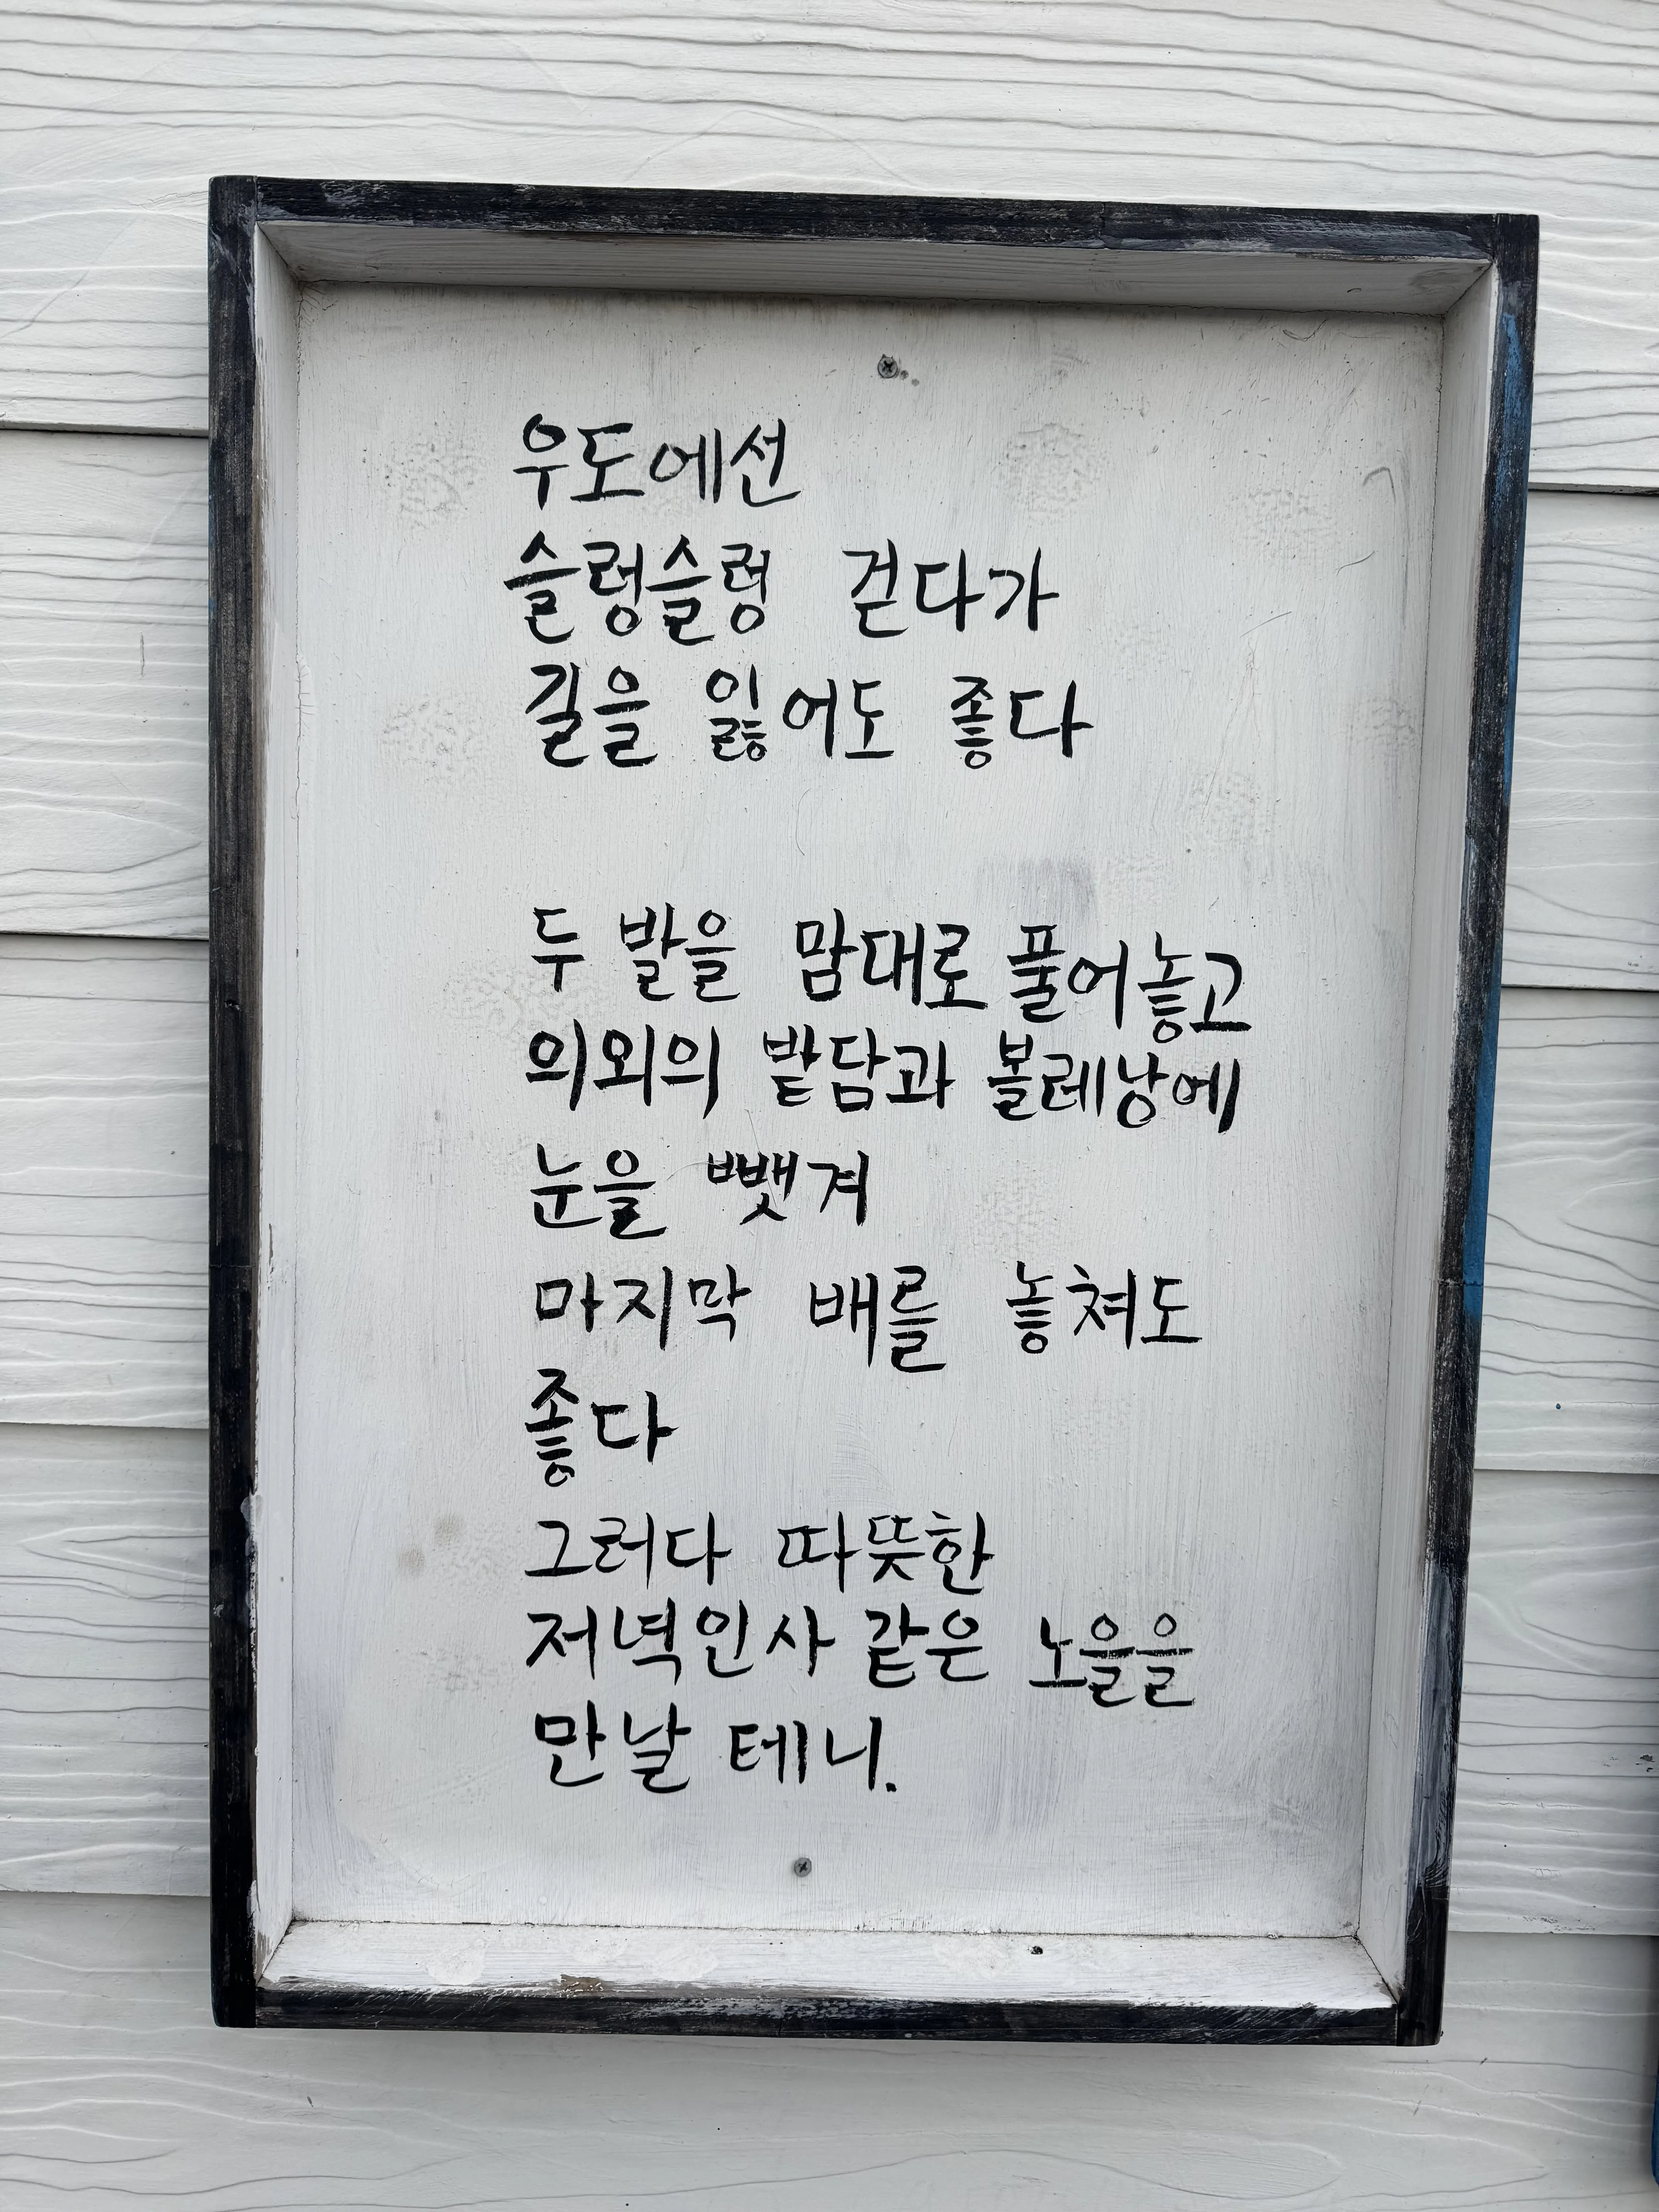 우도에선
슬렁슬렁 걷다가
길을 잃어도 좋다
두 발을 맘대로 풀어놓고
의외의 밭담과 볼레낭에
눈을 뺏겨
마지막 배를 놓쳐도
좋다
그러다 따뜻한
저녁인사 같은 노을을
만날 테니.